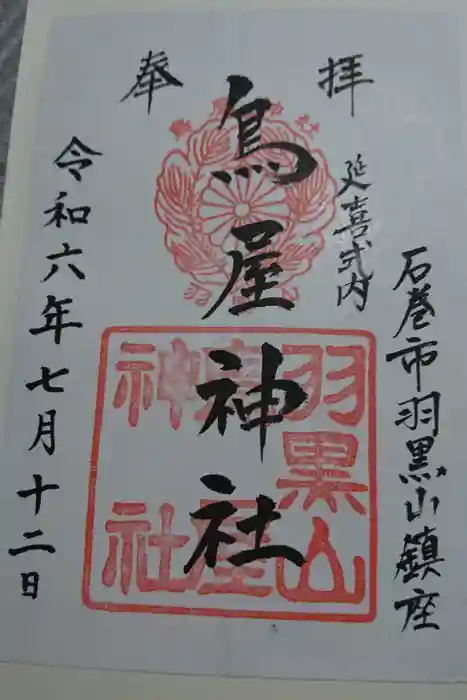 奉拝
石巻市羽黒山鎮座
延喜式内
鳥屋神社
令和六年七月十二日
羽黒山
鳥屋
神社